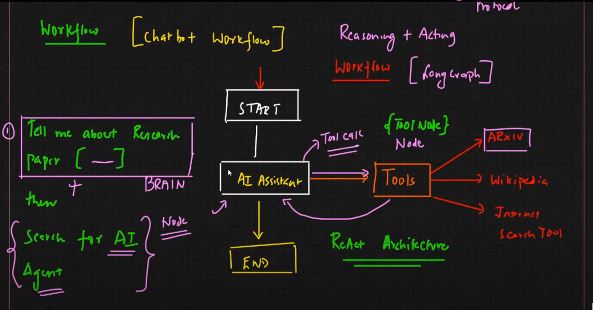 Protocol
Workflow [Chatbot Workflow]
Reasoning + Acting
Workflow [Langgraph]
START
① Tell me about Research
paper [ — ]
+ BRAIN
then
{ Search for AI
Agent }
Node
AI Assistant
END
Tool call
{Tool Node}
Node
Tools
ARXIV
Wikipedia
Internet
Search Tool
ReAct Architecture